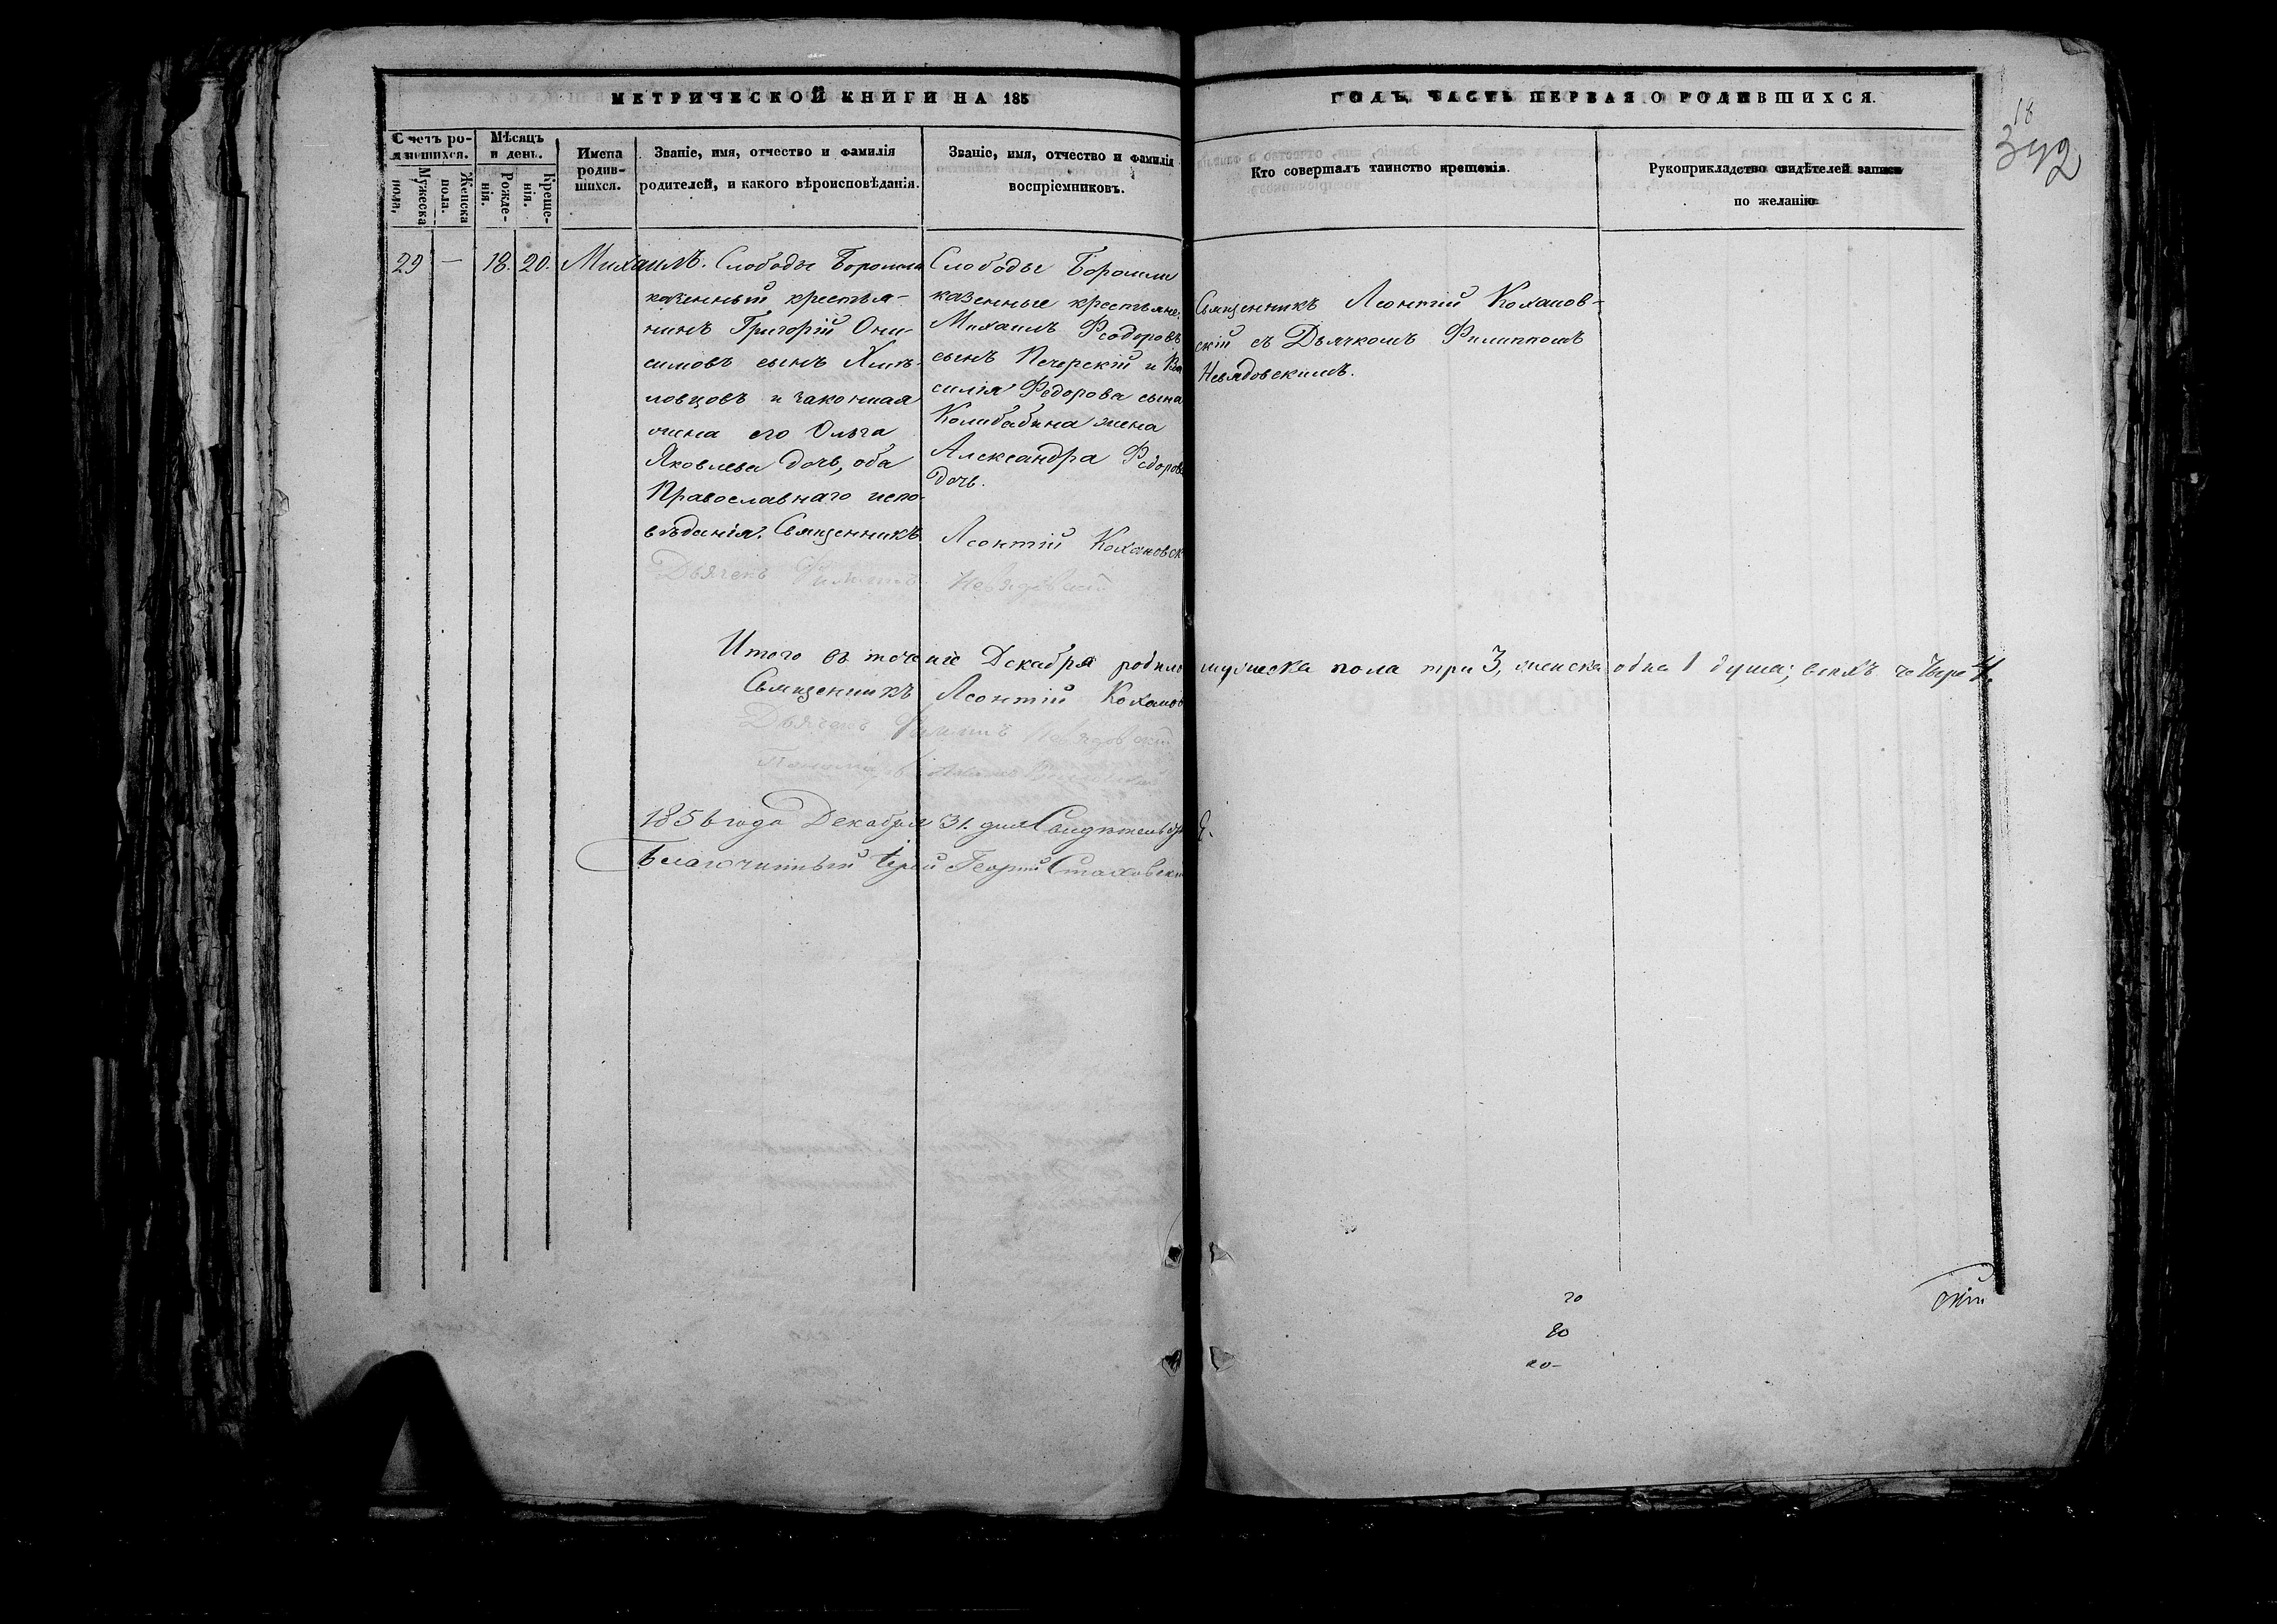 МЕТРИЧЕСКОЙ КНИГИ НА 185
ГОДЪ, ЧАСТЬ ПЕРВАЯ О РОДИВШИХСЯ.
18
342
Счетъ родившихся.
Мужеска пола.
Женска пола.
Мѣсяцъ и день.
Рожденія.
Крещенія.
Имена родившихся.
Званіе, имя, отчество и фамилія
родителей, и какого вѣроисповѣданія.
Званіе, имя, отчество и фамилія
воспріемниковъ.
Кто совершалъ таинство крещенія.
Рукоприкладство свидѣтелей записи
по желанію
29 — 18. 20. Михаилъ.
Слободы Боромли
казенный крестья-
нинъ Григорій Они-
симовъ сынъ
ловцовъ и законная
жена его Ольга
Яковлева дочь, оба
Православнаго испо-
вѣданія. Священникъ
Дьячекъ Филиппъ
Слободы Боромли
казенные крестьяне:
Михаилъ Феодоровъ
сынъ Печерскій и Ва
силія Федорова сына
Колибабина жена
Александра Федорова
дочь.
Леонтій Кохановск
Невядовскій
Священникъ Леонтій Коханов-
скій съ Дьячкомъ Филиппомъ
Невядовскимъ.
Итого въ теченіе Декабря родило мужеска пола три 3, женска одна 1 душа; всехъ четыре 4.
Священникъ Леонтій Коханов
Дьячекъ Филиппъ Невядовскій
Пономарь
1856 года Декабря 31. дня
Благочинный Іерей Георгій Стаховскій
20
20
20-
скій